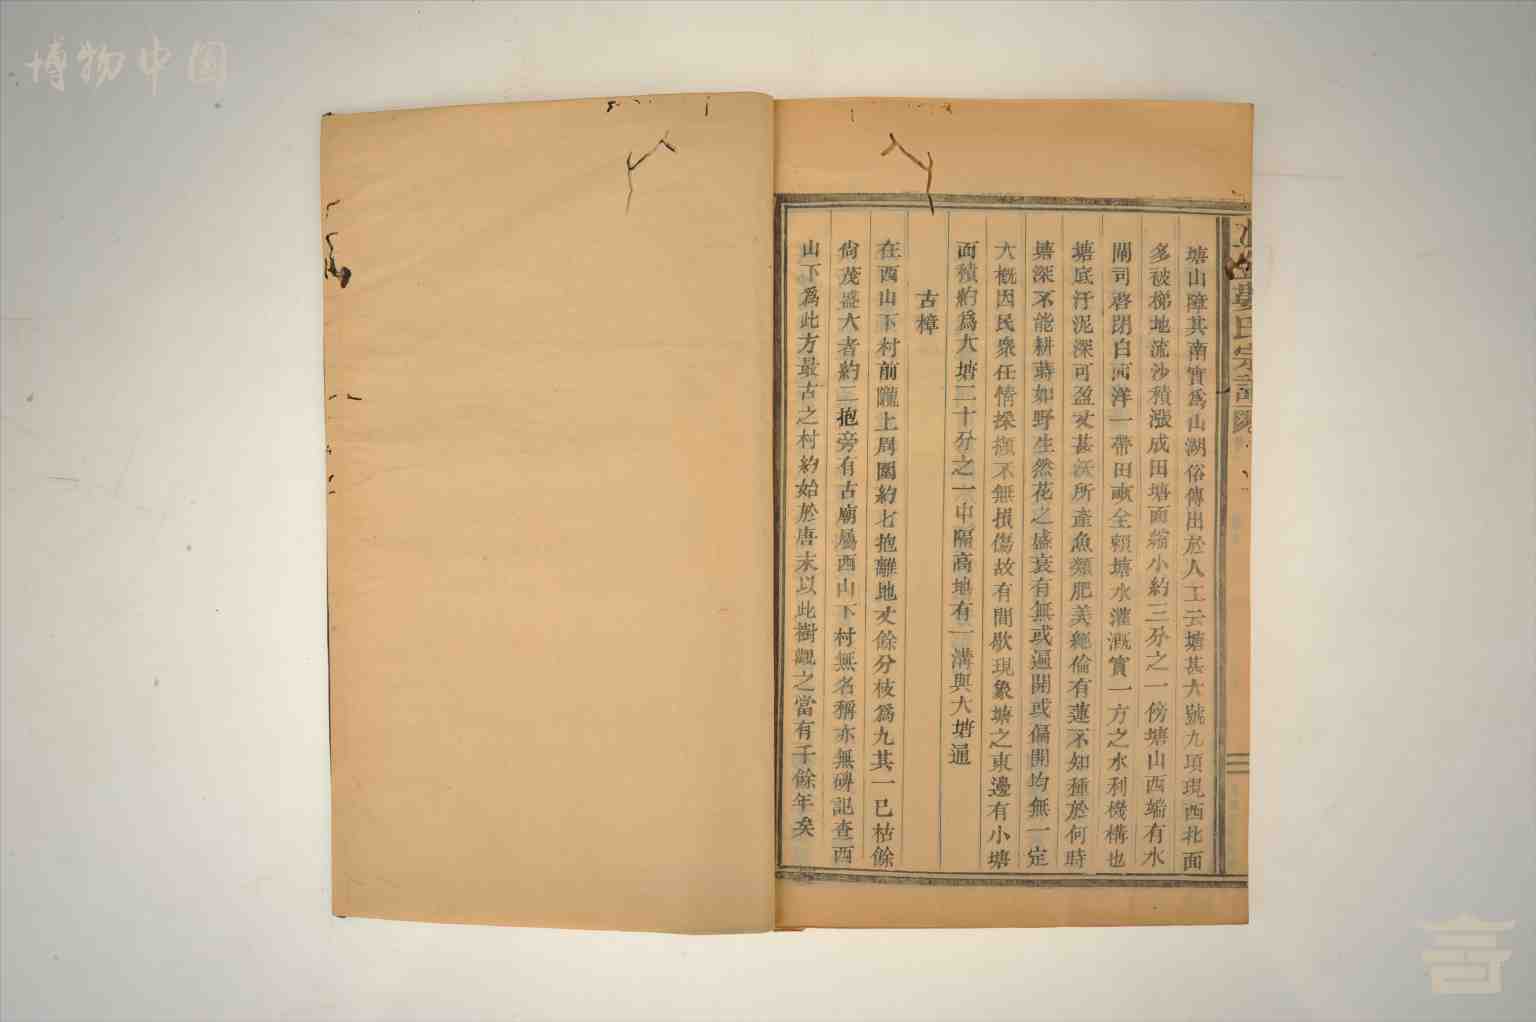 博物中国
塘山障其南實爲山湖俗傳出於人工云塘甚大號九頃現西北面
多被梯地流沙積漲成田塘面縮小約三分之一傍塘山西端有水
閘司啓閉白洋一帶田畝全賴塘水灌溉實一方之水利機構也
塘底汙泥深可盈丈甚沃所產魚類肥美絕倫有蓮不知種於何時
塘深不能耕蒔如野生然花之盛衰有無或遍開或偏開均無一定
大概因民衆任情採擷不無損傷故有間歇現象塘之東邊有小塘
面積約爲大塘二十分之一中隔高地有一溝與大塘通
古樟
在西山下村前隴上周圍約七抱離地丈餘分枝爲九其一已枯餘
尙茂盛大者約二抱旁有古廟屬西山下村無名稱亦無碑記查西
山下爲此方最古之村約始於唐末以此樹觀之當有千餘年矣
氏宗譜